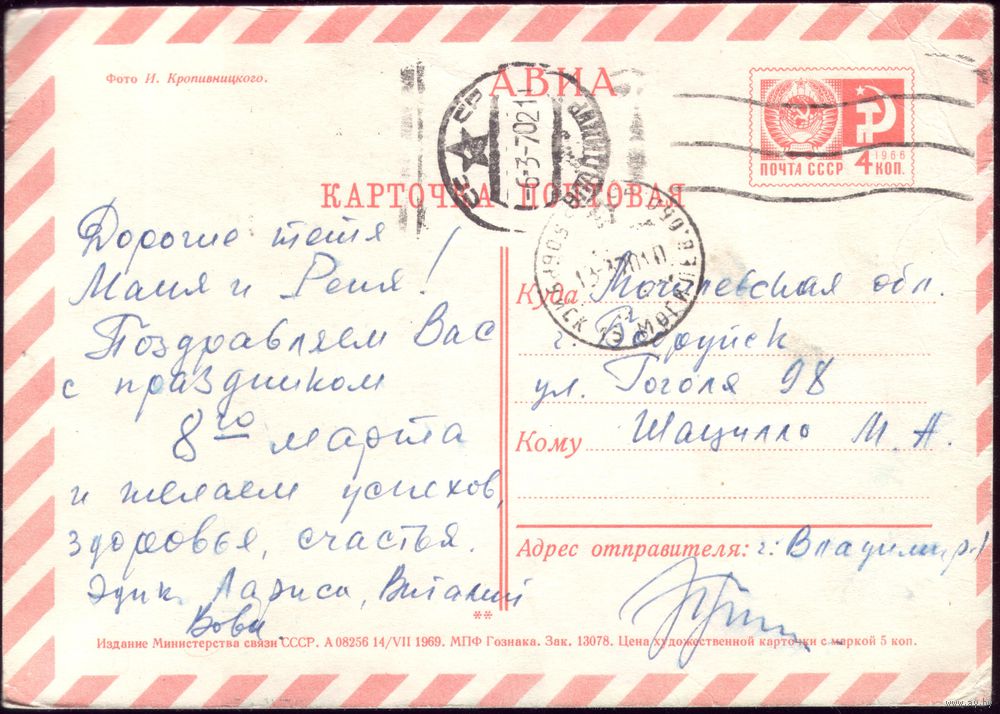 Фото И. Кропивницкого.
АВИА
КАРТОЧКА ПОЧТОВАЯ
СССР
-6-3-7021
ВЛАДИМИР
ПОЧТА СССР
1966
4 КОП.
Дорогие тётя
Маня и Реня!
Поздравляем Вас
с праздником
8го марта
и желаем успехов,
здоровья, счастья.
Эдик, Лариса, Виталий
Вова.
БОБРУЙСК 13 МОГИЛЕВ.ОБЛ
Куда Могилевская обл.
г. Бобруйск
ул. Гоголя 98
Кому Шацилло М. А.
Адрес отправителя: г. Владимир-1
**
Издание Министерства связи СССР. А 08256 14/VII 1969. МПФ Гознака. Зак. 13078. Цена художественной карточки с маркой 5 коп.
www.ay.by